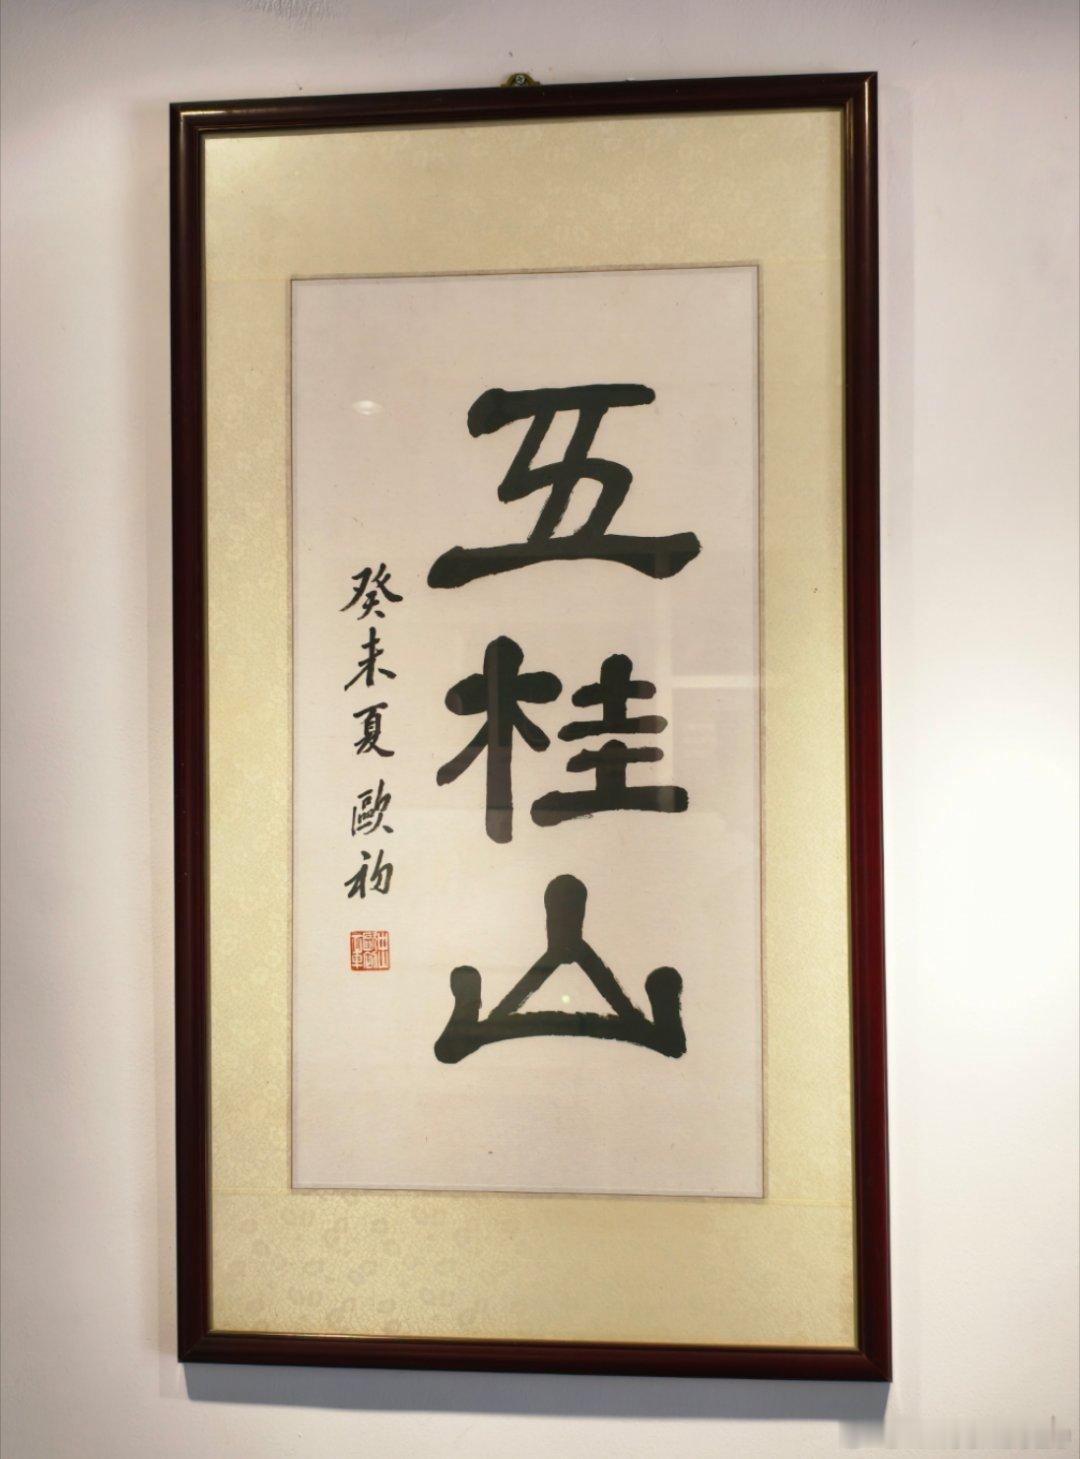 五桂山
癸未夏 歐初